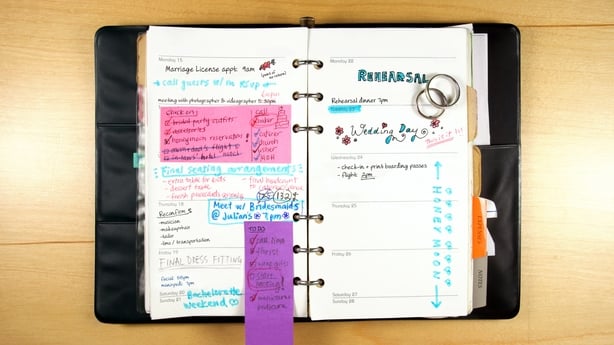 Monday 15
Marriage License appt. 9am
call guests w/ no RSVP
meeting with photographer & videographer 12:30pm
check on:
bridal party outfits
accessories
honeymoon reservations!
mom + dad's flight
in-laws' hotel
call
baker
caterer
church
usher
MOH
Final seating arrangements
- extra table for kids
- dessert table
- final headcount
(132)
Meet w/ Bridesmaids
@ Julian's @ 7pm
Thursday 18
Reconfirm
- musician
- makeup/hair
- limo / transportation
Friday 19
FINAL DRESS FITTING
facial 5:00pm
manipedi 7pm
Saturday 20
Sunday 21
Bachelorette
Weekend
TO DO
florist
Monday 22
REHEARSAL
Rehearsal dinner 7pm
Tuesday 23
Wedding Day
This is it!
Wednesday 24
- check-in + print boarding passes
- flight 2pm
Thursday 25
Friday 26
Saturday 27
Sunday 28
HONEYMOON
EXPENSES
NOTES